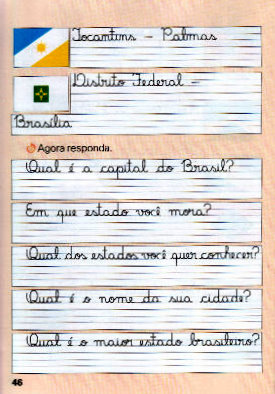 Tocantins - Palmas
Distrito Federal -
Brasília
Agora responda.
Qual é a capital do Brasil?
Em que estado você mora?
Qual dos estados você quer conhecer?
Qual é o nome da sua cidade?
Qual é o maior estado brasileiro?
46